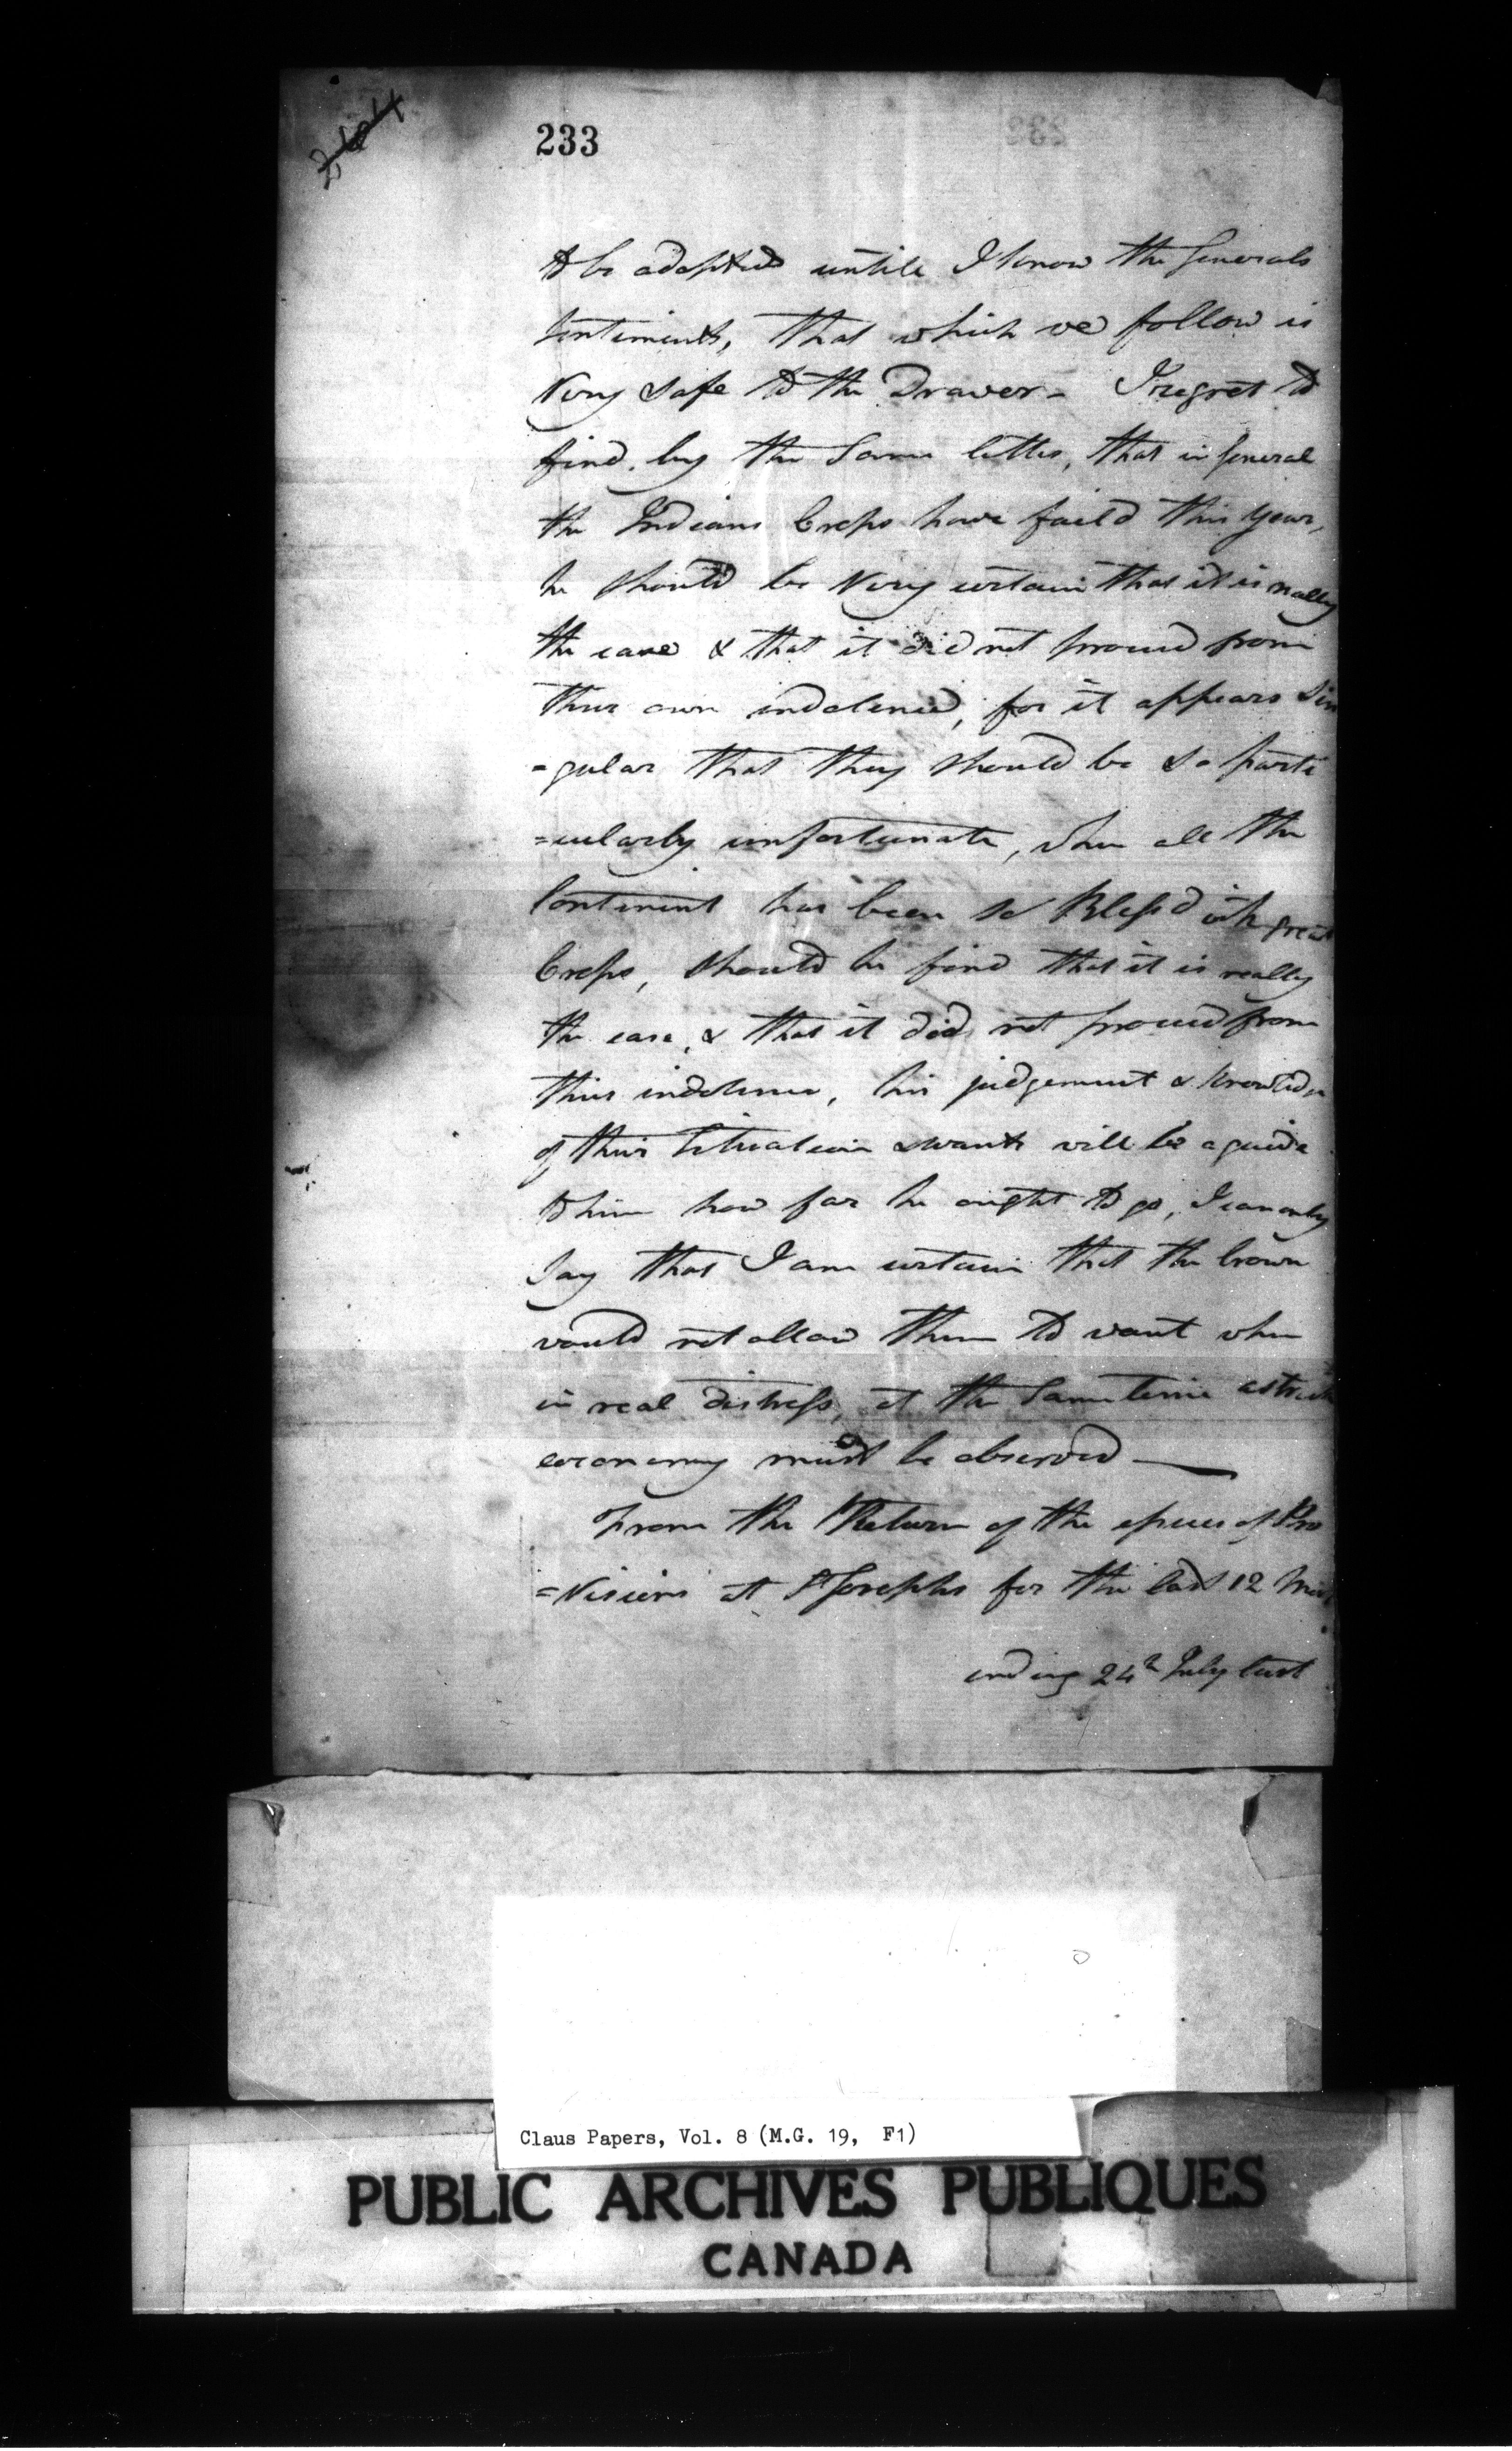 233
to be adopted untill I know the Generals
Sentiments, that which we follow is
Very safe to the Drawer - I regret to
find, by the Same letter, that in General
the Indians Crops have faild this year,
he should be Very certain that it is really
the case & that it did not proceed from
their own indolence, for it appears Sin
=gular that they should be so parti
=cularly unfortunate, when all the
Continent has been so Blessd with great
Crops, should he find that it is really
the case, & that it did not proceed from
their indolence, his judgement & knowledge
of their Situation & wants will be a guide
to him how far he ought to go, I can only
Say that I am certain that the Crown
would not allow them to want when
in real distress, at the Same time a strict
economy must be observed —
From the Return of the issues of Pro
=Visions at St Josephs for the last 12
ending 24th July last
Claus Papers, Vol. 8 (M.G. 19, F1)
PUBLIC ARCHIVES PUBLIQUES
CANADA